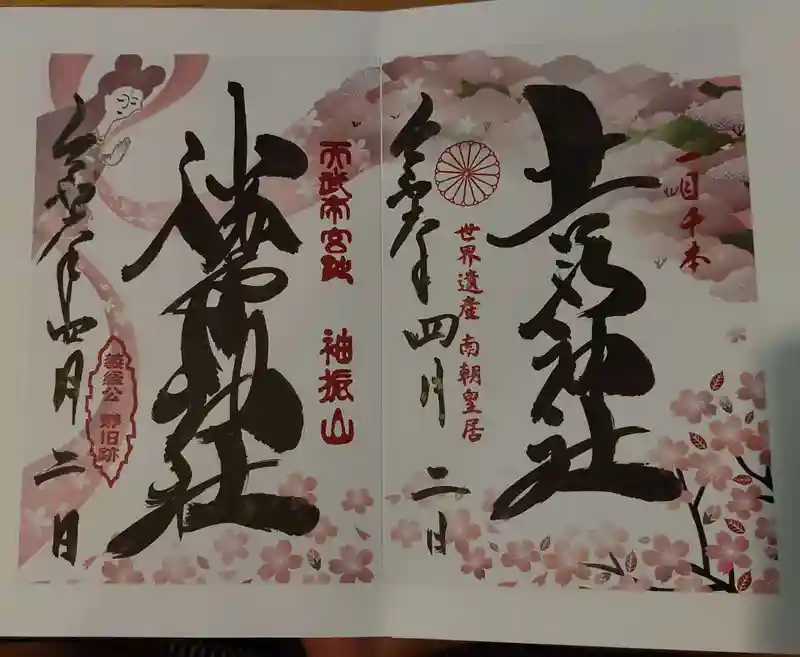 一目千本
吉水神社
世界遺産 南朝皇居
令和六年四月二日
天武帝宮跡 袖振山
勝手神社
義経公 旧跡
令和六年四月二日